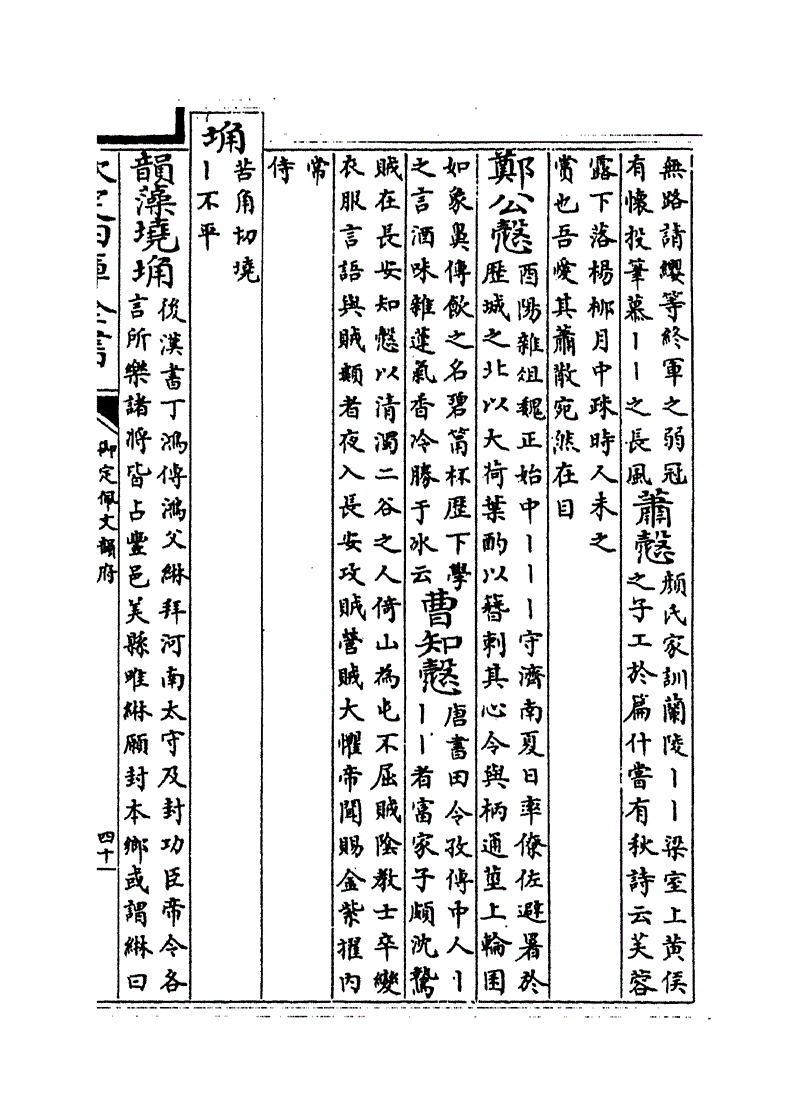 無路請纓等終軍之弱冠
有懷投筆慕丨丨之長風
蕭慤
顔氏家訓蘭陵丨丨梁室上黄侯
之子工於篇什嘗有秋詩云芙蓉
露下落楊柳月中疎時人未之
賞也吾愛其蕭散宛然在目
鄭公慤
酉陽雜俎魏正始中丨丨丨守濟南夏日率僚佐避暑於
歴城之北以大荷葉酌以簪刺其心令與柄通莖上輪囷
如象鼻傳飲之名碧筩杯歴下學
之言酒味雜蓮氣香冷勝于冰云
曹知慤
唐書田令孜傳中人丨
丨丨者富家子頗沈鷙
賊在長安知慤以清濁二谷之人倚山為屯不屈賊陰教士卒變
衣服言語與賊類者夜入長安攻賊營賊大懼帝聞賜金紫擢内
常
侍
埆
苦角切墝
丨不平
韻藻
墝埆
後漢書丁鴻傳鴻父綝拜河南太守及封功臣帝令各
言所樂諸將皆占豐邑美縣唯綝願封本鄉或謂綝曰
欽定四庫全書
御定佩文韻府
四十一